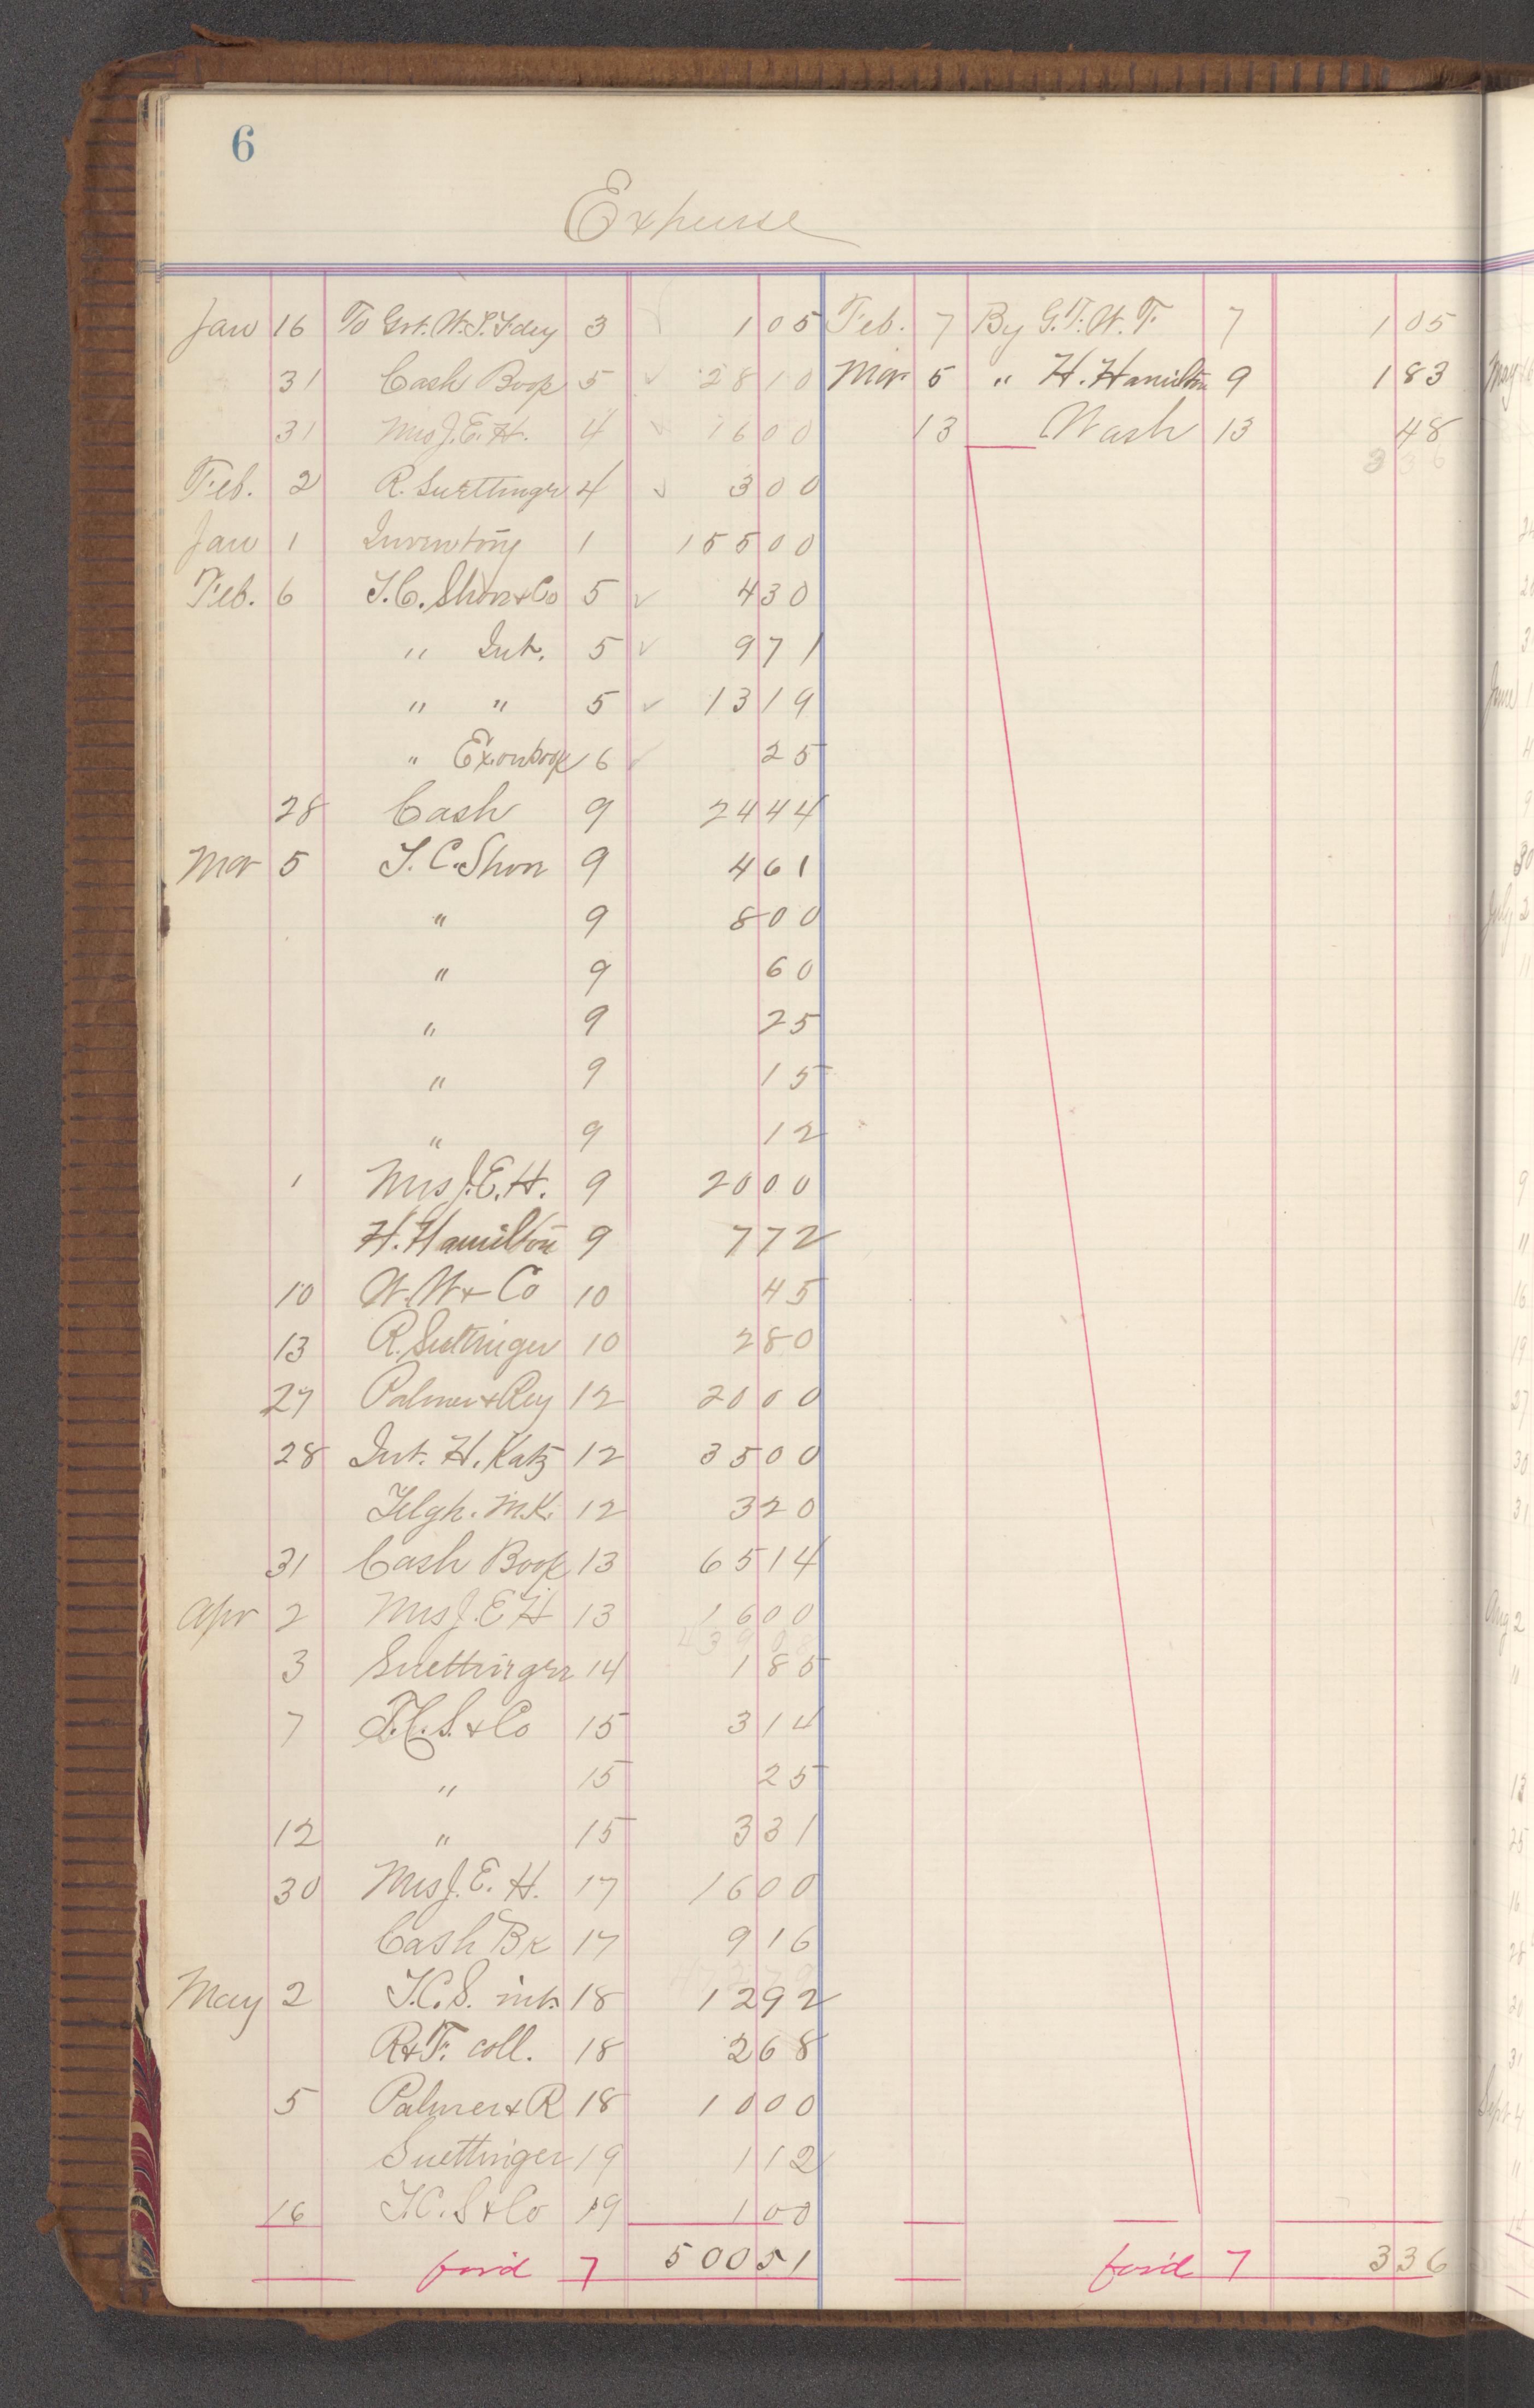 6
Expense
Jan 16 To Grt. W. T. Fdry 3 1 05
31 Cash Book 5 28 10
31 Mrs J. E. H. 4 16 00
Feb. 2 R. Suettinger 4 3 00
Jan 1 Inventory 1 155 00
Feb. 6 T. C. Shon & Co 5 4 30
" Int. 5 9 71
" " 5 13 19
" Ex. on book 6 25
28 Cash 9 24 44
Mar 5 T. C. Shon 9 4 61
" 9 8 00
" 9 60
" 9 25
" 9 15
" 9 12
1 Mrs J. E. H. 9 20 00
H. Hamilton 9 7 72
10 W. W & Co 10 45
13 R. Suettinger 10 2 80
27 Palmer & Rey 12 20 00
28 Int. H. Katz 12 35 00
Telgh. M. K. 12 3 20
31 Cash Book 13 65 14
Apr 2 Mrs J. E H 13 16 00
3 Suettinger 14 1 85
7 T. C. S. & Co 15 3 14
" 15 25
12 " 15 3 31
30 Mrs J. E. H. 17 16 00
Cash Bk 17 9 16
May 2 T. C. S. int. 18 12 92
R & F. coll. 18 2 68
5 Palmer & R 18 10 00
Suettinger 19 1 12
16 T. C. S & Co 19 1 00
for'd 7 500 51
Feb. 7 By G. T. W. F. 7 1 05
Mar 5 " H. Hamilton 9 1 83
13 Wash 13 48
3 36
for'd 7 3 36